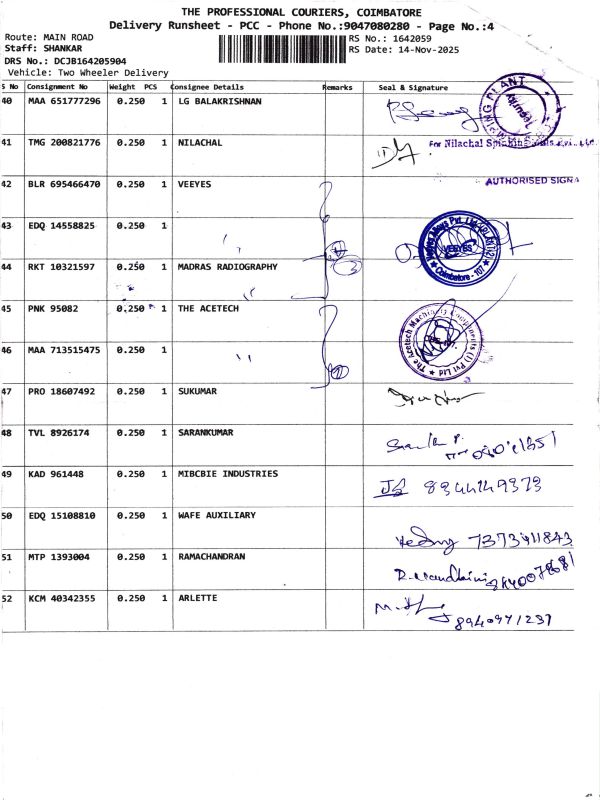 THE PROFESSIONAL COURIERS, COIMBATORE
Delivery Runsheet - PCC - Phone No.:9047080280 - Page No.:4
Route: MAIN ROAD
RS No.: 1642059
Staff: SHANKAR
RS Date: 14-Nov-2025
DRS No.: DCJB164205904
Vehicle: Two Wheeler Delivery
S No Consignment No Weight PCS Consignee Details Remarks Seal & Signature
40 MAA 651777296 0.250 1 LG BALAKRISHNAN
PLANT Security
41 TMG 200821776 0.250 1 NILACHAL
For Nilachal
42 BLR 695466470 0.250 1 VEEYES
AUTHORISED SIGNA
43 EDQ 14558825 0.250 1 ,,
VEEYES Coimbatore - 107
44 RKT 10321597 0.250 1 MADRAS RADIOGRAPHY
3
45 PNK 95082 0.250 1 THE ACETECH
The Acetech Machining Components (I) Pvt Ltd
46 MAA 713515475 0.250 1 ,,
47 PRO 18607492 0.250 1 SUKUMAR
48 TVL 8926174 0.250 1 SARANKUMAR
49 KAD 961448 0.250 1 MIBCBIE INDUSTRIES
50 EDQ 15108810 0.250 1 WAFE AUXILIARY
7373911843
51 MTP 1393004 0.250 1 RAMACHANDRAN
52 KCM 40342355 0.250 1 ARLETTE